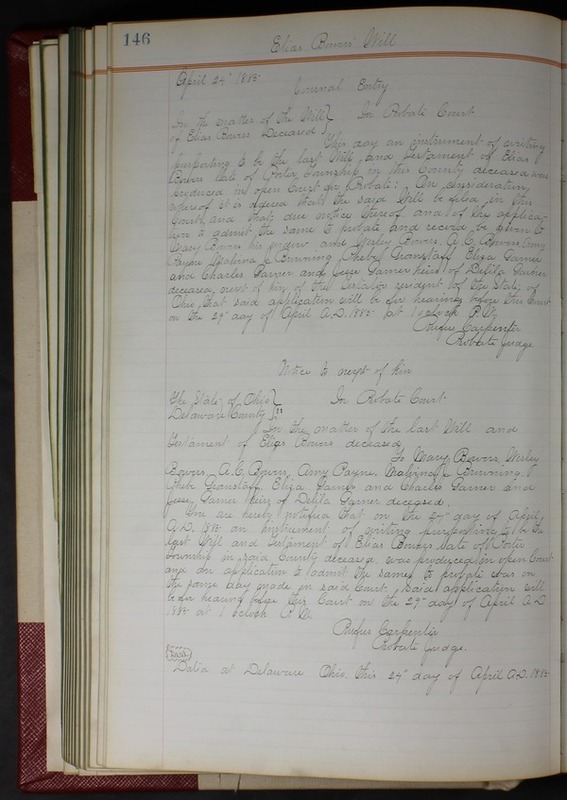 146
Elias Bowers Will
April 24" 1885
Journal Entry
In the matter of the Will } In Probate Court
of Elias Bowers Deceased } This day an instrument of writing
purporting to be the last Will and testament of Elias
Bowers late of Porter Township in this County deceased was
produced in open Court for Probate: On consideration
whereof it is ordered that the said Will be filed in this
Court, and that due notice thereof and of the applica-
tion to admit the same to probate and record be given to
Mary Bowers his widow and Wesley Bowers, A.C. Bowers, Amy
Payne, Malvina Brunning, Phebe Eliza Garner
and Charles Garner and Jesse Garner heirs of Delila Garner
deceased, next of kin of the testator resident of the State of
Ohio, that said application will be for hearing before this Court
on the 29" day of April A.D. 1885 at 1 oclock P.M.
Rufus Carpenter
Probate Judge
Notice to next of kin
The State of Ohio } In Probate Court
Delaware County } ss
In the matter of the last Will and
testament of Elias Bowers deceased
To Mary Bowers, Wesley
Bowers, A.C. Bowers, Amy Payne, Malvina Brunning,
Phebe Eliza Garner and Charles Garner and
Jesse Garner heirs of Delila Garner deceased.
You are hereby notified that on the 24" day of April,
A.D. 1885 an instrument of writing purporting to be the
last Will and testament of Elias Bowers late of Porter
Township in said County deceased, was produced in open Court
and an application to admit the same to probate was on
the same day made in said Court. Said application will
be for hearing before this Court on the 29" day of April A.D.
1885 at 1 oclock P.M.
Rufus Carpenter
Probate Judge.
Seal
Dated at Delaware Ohio, this 24" day of April A.D. 1885